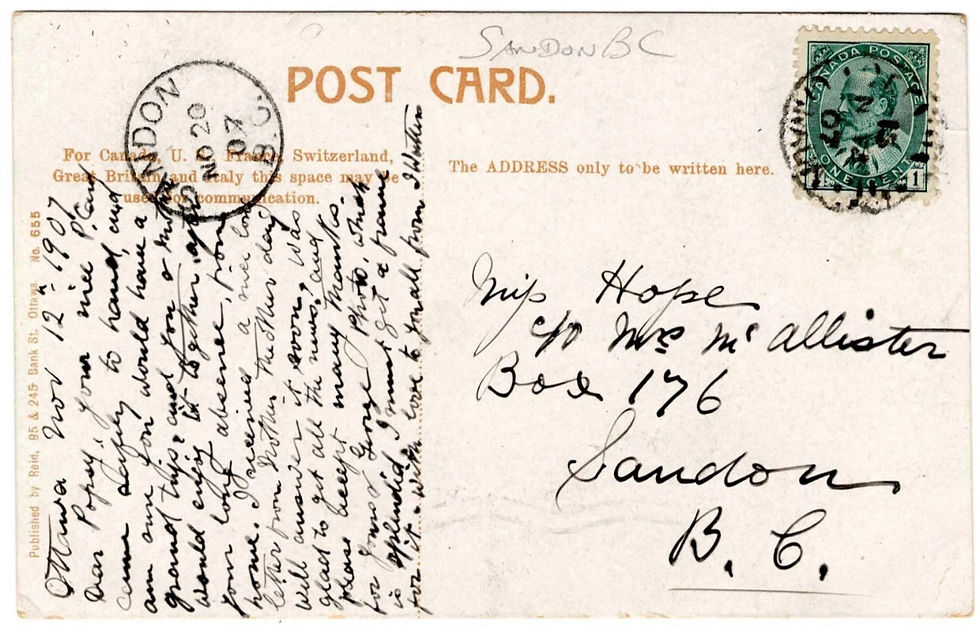 SANDON BC
POST CARD.
CANADA POSTAGE
ONE CENT
1 1
SANDON
NO 20
07
B.C.
For Canada, U. S., France, Switzerland,
Great Britain and Italy this space may be
used for communication.
The ADDRESS only to be written here.
Published by Reid, 95 & 245 Bank St. Ottawa. No. 655
Ottawa Nov 12th 1907
Dear Popsy, your nice P. Card
came safely to hand, and
am sure you would have a
grand trip: and you &
would enjoy it together, after
your long absence, from
home. I received a nice long
letter from Mother the other day
will answer it soon, was
glad to get all the news, and
please accept many thanks
for yours & George Photo, which
is splendid, I must get a frame
for it. With love to you all from
Miss Hope
c/o Mrs McAllister
Box 176
Sandon
B. C.